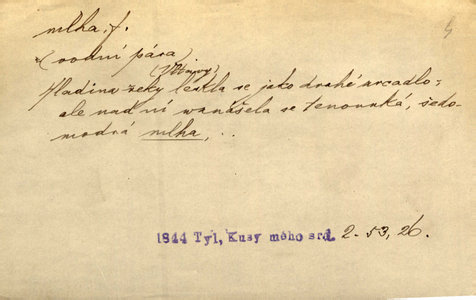 mlha, f.
(vodní pára)
(Vltavy)
Hladina řeky leskla se jako drahé zrcadlo -
ale nad ní wznášela se tenounká, šedo-
modrá mlha, ..
1844 Tyl, Kusy mého srd. 2. 53, 26.